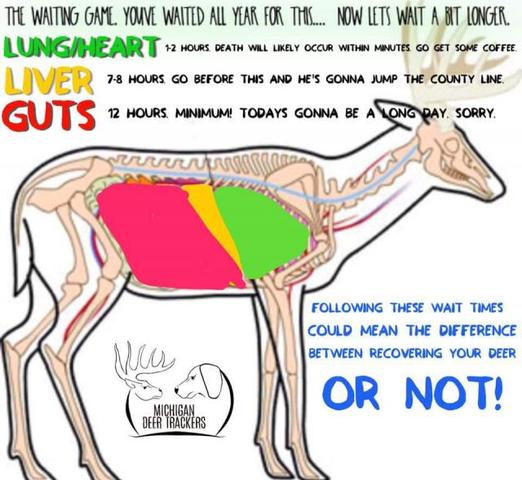 THE WAITING GAME. YOUVE WAITED ALL YEAR FOR THIS.... NOW LETS WAIT A BIT LONGER.
LUNG/HEART 1-2 HOURS. DEATH WILL LIKELY OCCUR WITHIN MINUTES. GO GET SOME COFFEE.
LIVER 7-8 HOURS. GO BEFORE THIS AND HE'S GONNA JUMP THE COUNTY LINE.
GUTS 12 HOURS. MINIMUM! TODAYS GONNA BE A LONG DAY. SORRY.
FOLLOWING THESE WAIT TIMES
COULD MEAN THE DIFFERENCE
BETWEEN RECOVERING YOUR DEER
OR NOT!
MICHIGAN
DEER TRACKERS